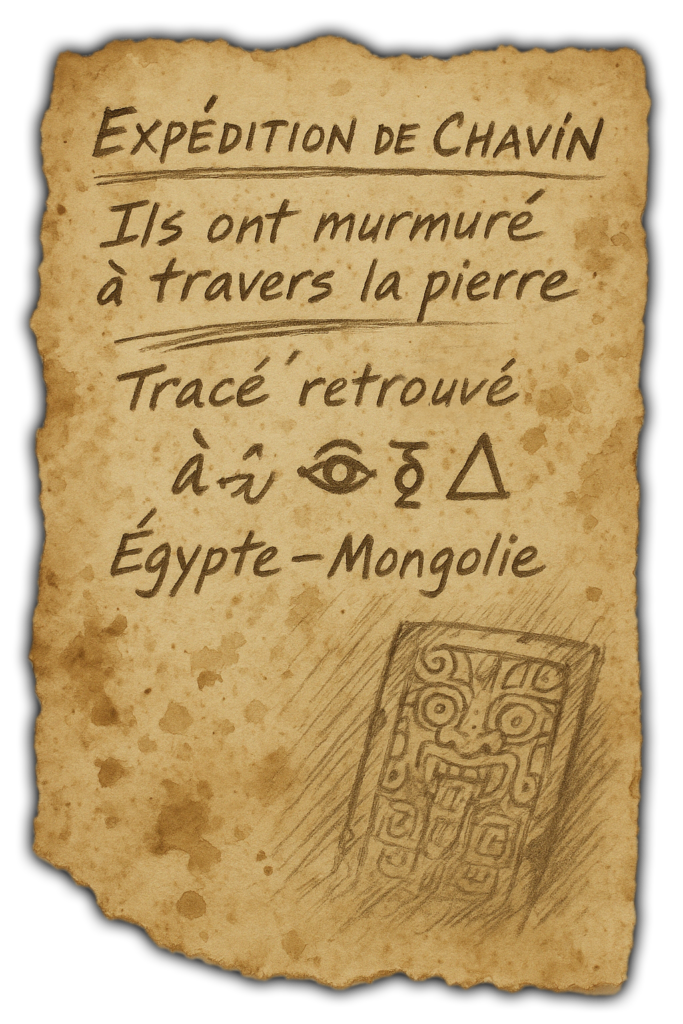 EXPÉDITION DE CHAVÍN
Ils ont murmuré
à travers la pierre
Tracé ′retrouvé
à
Égypte – Mongolie